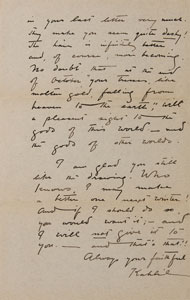 in your last letter very much.
they make you seem quite dashy!
The hair is infinitely better
and, of course, more becoming.
No doubt that at the end
of October your bronze, live
molten gold, falling from
heaven to the earth, will
a pleasant sight to the
gods of this world — and
the gods of other worlds.
I am glad you still
like the drawing! Who
knows? I may make
a better one next winter!
And if I should do so
you would want it; — and
I will not give it to
you. — and that's that!!
Always your faithful
Kahlil